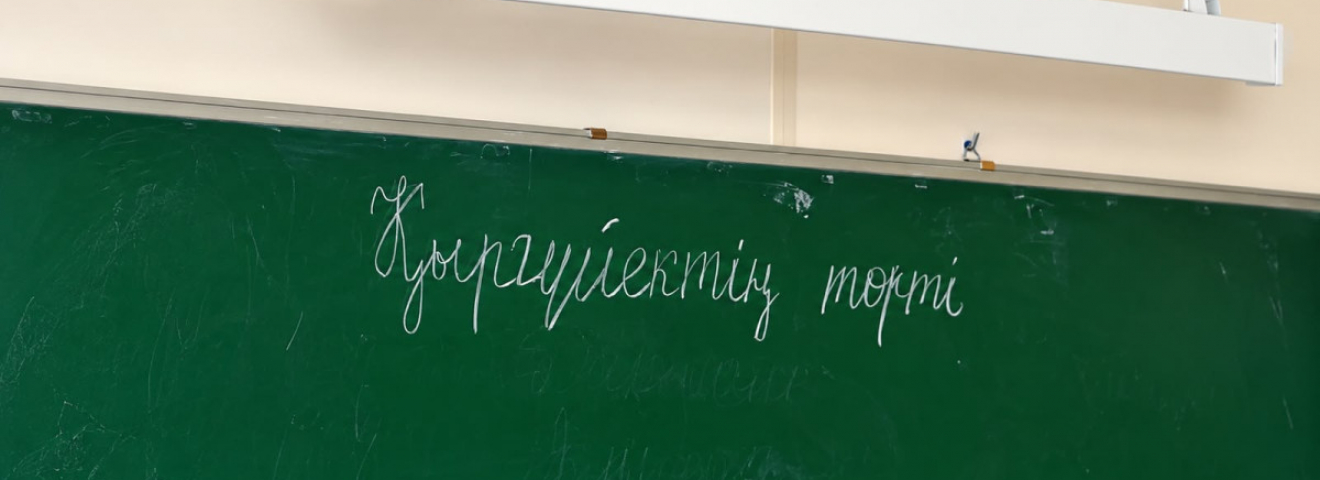 Қыргүйектің төрті